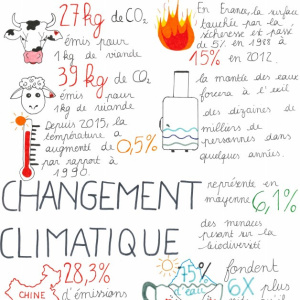 27kg de CO₂
émis pour
1kg de viande
En France, la surface
touchée par la
sécheresse est passé
de 5% en 1988 à
15% en 2012.
39 kg de CO₂
émis pour
1kg de viande
la montée des eaux
forcera à l'exil
des dizaines de
milliers de
personnes dans
quelques années.
Depuis 2015, la
température a
augmenté de 0,5%
par rapport à
1990.
CHANGEMENT
CLIMATIQUE
représente en
moyenne 6,1%
des menaces
pesant sur la
biodiversité
28,3%
d'émissions
CHINE
75%
d'eau
fondent
6X plus